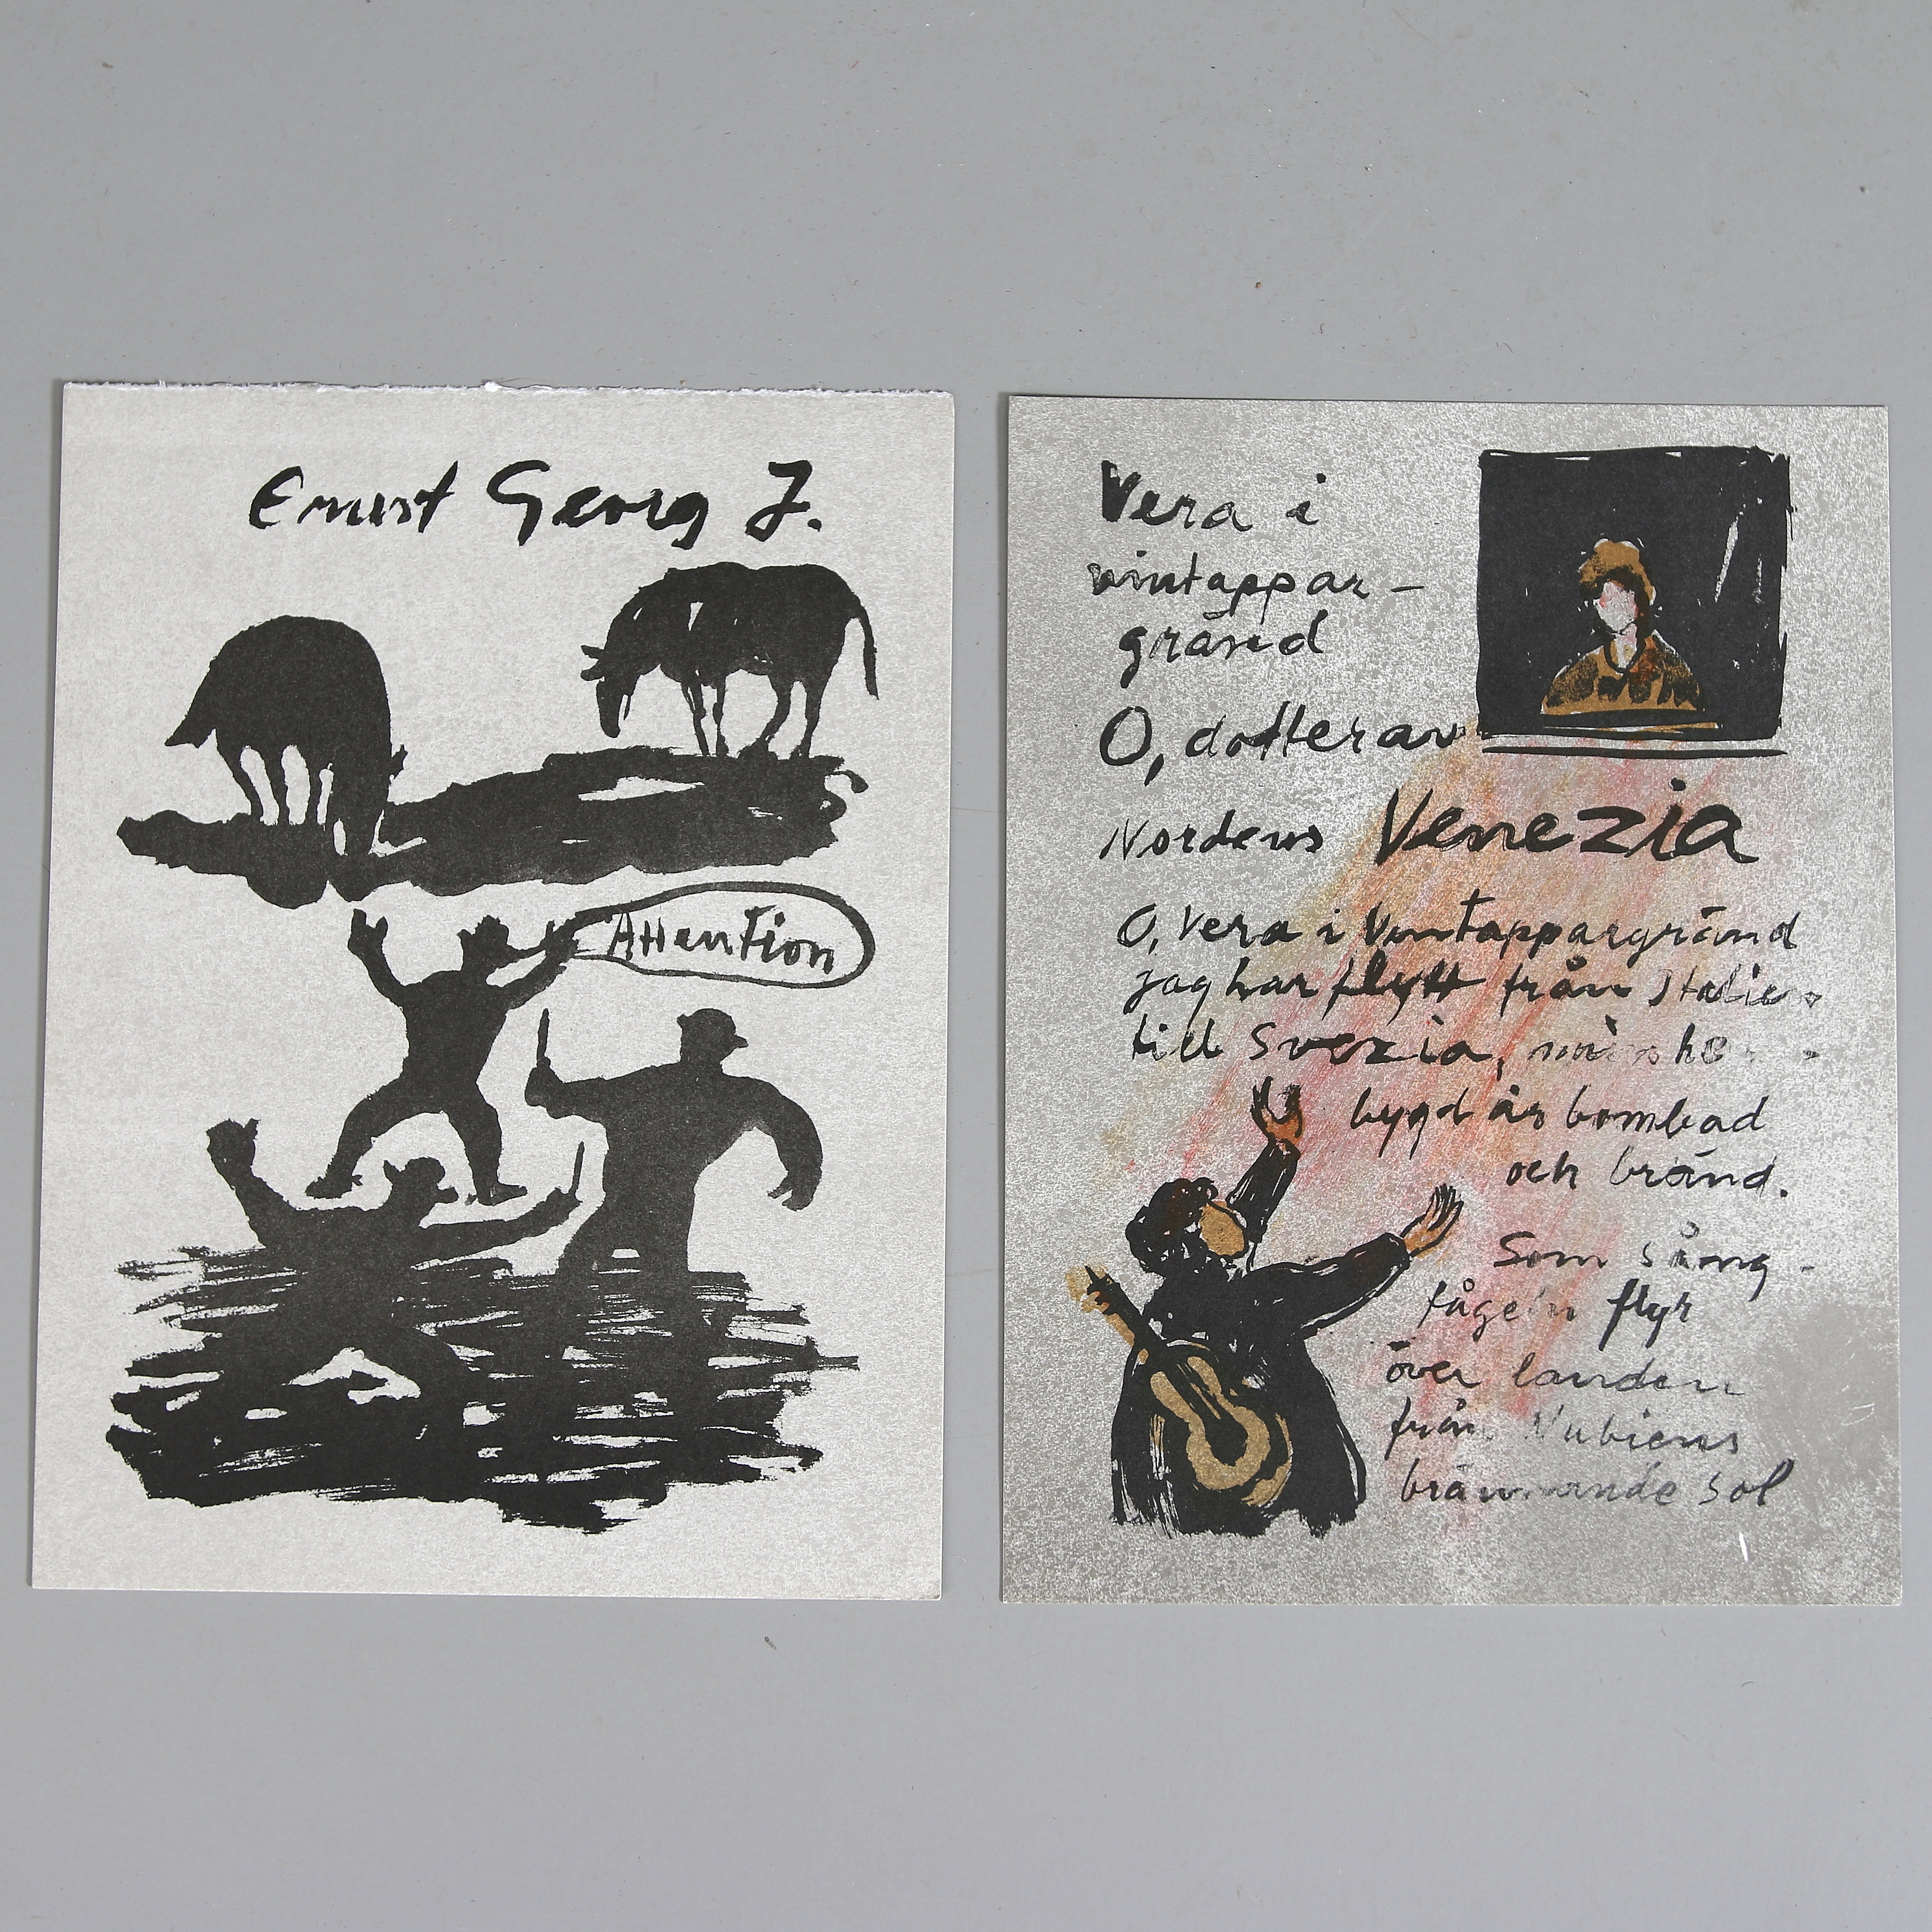 Ernst Georg J.
Attention
Vera i
vintappar-
gränd
O, dotter av
Nordens Venezia
O, Vera i Vintappargränd
jag har flytt från Italien
till Svezia, min he -
bygd är bombad
och bränd.
Som sång-
fågeln flyr
över landen
från Nubiens
brännande sol